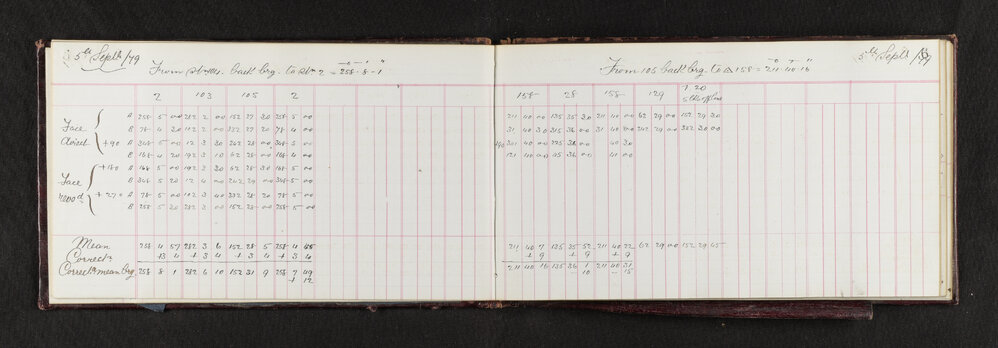 5th Septbr /79
From Stn 104 back brg. to Stn 2 = 258 · 8 · 1
2 103 105 2
Face direct A 258 5 00 282 2 00 152 27 30 258 5 00
B 78 4 30 102 2 00 332 27 20 78 4 00
+90 A 348 5 00 12 3 30 242 28 00 348 5 00
B 168 4 20 192 3 10 62 28 00 168 4 00
Face revsd. +180 A 168 5 00 192 3 30 62 28 30 168 5 00
B 348 5 20 12 4 00 242 29 00 348 5 00
+270 A 78 5 00 102 3 40 332 28 20 78 5 00
B 258 5 20 282 3 00 152 28 00 258 5 00
Mean 258 4 57 282 3 6 152 28 5 258 4 45
Correctn +3 4 + 3 4 + 3 4 + 3 4
Correctn mean brg. 258 8 1 282 6 10 152 31 9 258 7 49
+ 12
5th Septbr /79
From 105 back brg. to △ 158 = 211 · 40 · 16
158 28 158 129
211 40 00 135 35 30 211 40 00 62 29 00 152 29 30
31 40 30 315 36 00 31 40 00 242 29 00 332 30 00
301 40 00 225 36 00 40 30
121 40 00 45 36 00 40 00
211 40 7 135 35 52 211 40 22 62 29 00 152 29 45
+ 9 + 9 + 9
211 40 16 135 36 1 211 40 31
10 - 15